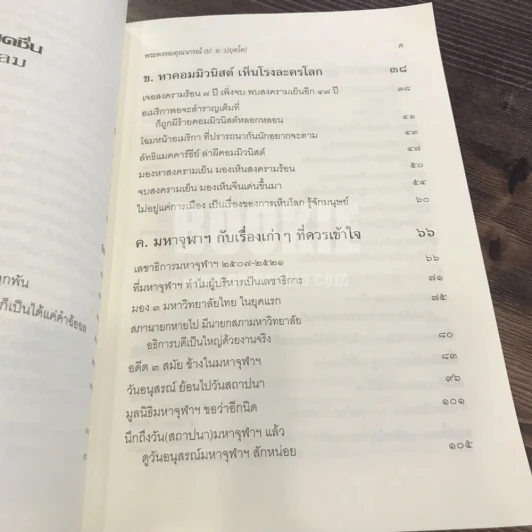 พระพรหมคุณาภรณ์ (ป. อ. ปยุตฺโต) ค
ข. หาคอมมิวนิสต์ เห็นโรงละครโลก ๓๘
เจอสงครามร้อน ๗ ปี เพิ่งจบ พบสงครามเย็นอีก ๔๗ ปี ๓๘
อเมริกาพอจะสำราญเต็มที่
ก็ถูกผีร้ายคอมมิวนิสต์หลอกหลอน ๔๑
โฉมหน้าอเมริกา ที่ปรารถนากันนักอยากจะตาม ๔๓
ลัทธิแมคคาร์ธีย์ ล่าผีคอมมิวนิสต์ ๔๗
มองหาสงครามเย็น มองเห็นสงครามร้อน ๕๐
จบสงครามเย็น มองเห็นจีนเด่นขึ้นมา ๕๔
ไม่อยู่แค่การเมือง เป็นเรื่องของการเห็นโลก รู้จักมนุษย์ ๖๐
ค. มหาจุฬาฯ กับเรื่องเก่าๆ ที่ควรเข้าใจ ๖๖
เลขาธิการมหาจุฬาฯ ๒๕๐๗-๒๕๒๑ ๖๖
ที่มหาจุฬาฯ ทำไมผู้บริหารเป็นเลขาธิการ ๗๑
มอง ๓ มหาวิทยาลัยไทย ในยุคแรก ๗๕
สภานายกหายไป มีนายกสภามหาวิทยาลัย
อธิการบดีเป็นใหญ่ด้วยงานจริง ๘๐
อดีต ๓ สมัย ข้างในมหาจุฬาฯ ๘๓
วันอนุสรณ์ ย้อนไปวันสถาปนา ๙๖
มูลนิธิมหาจุฬาฯ ขอว่าอีกนิด ๑๐๑
นึกถึงวัน(สถาปนา)มหาจุฬาฯ แล้ว
ดูวันอนุสรณ์มหาจุฬาฯ สักหน่อย ๑๐๕